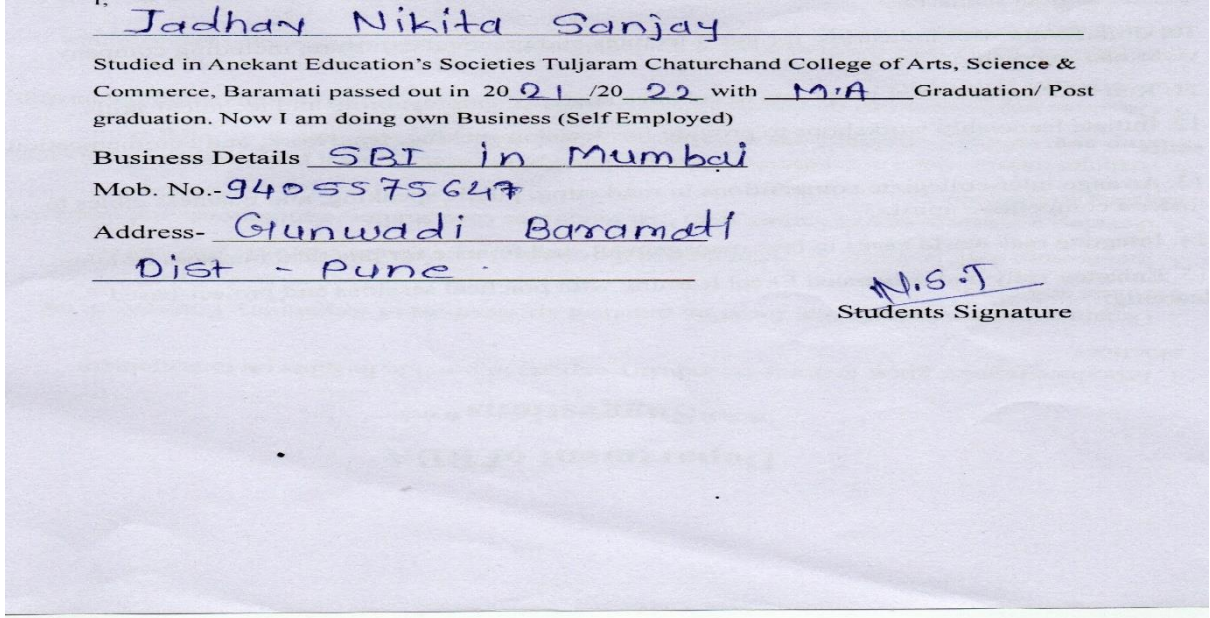 I,
Jadhav Nikita Sanjay
Studied in Anekant Education's Societies Tuljaram Chaturchand College of Arts, Science &
Commerce, Baramati passed out in 2021 /2022 with M.A Graduation/ Post
graduation. Now I am doing own Business (Self Employed)
Business Details SBI in Mumbai
Mob. No.-9405575647
Address- Gunwadi Baramati
Dist - Pune.
N.S.J
Students Signature